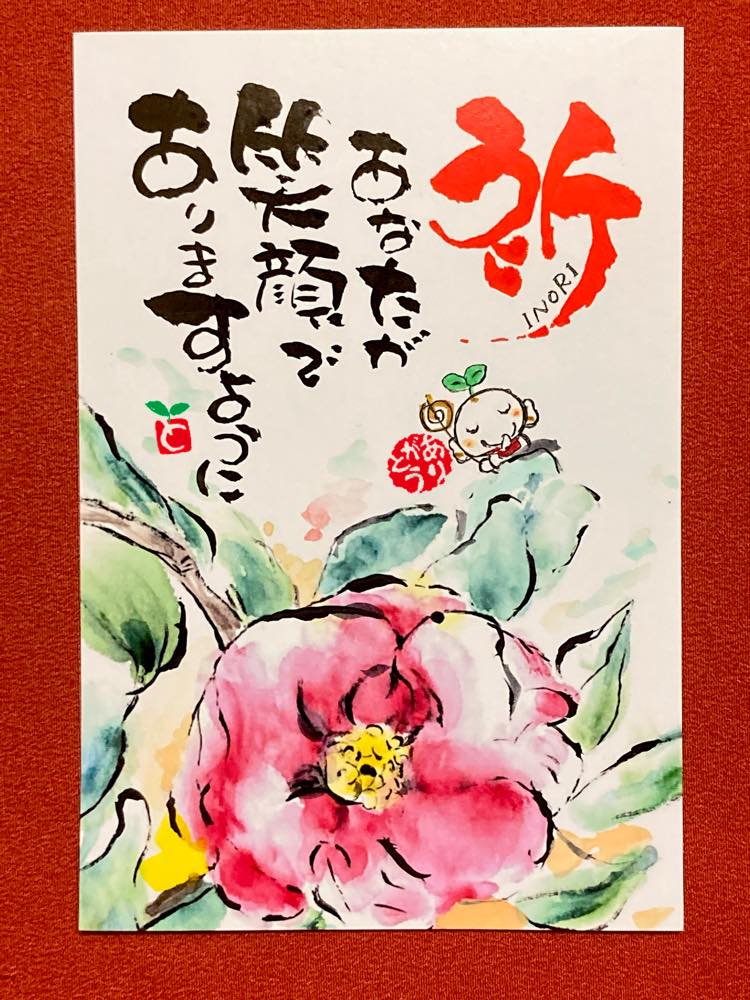 祈
INORI
あなたが
笑顔で
ありますように
あり
がとう